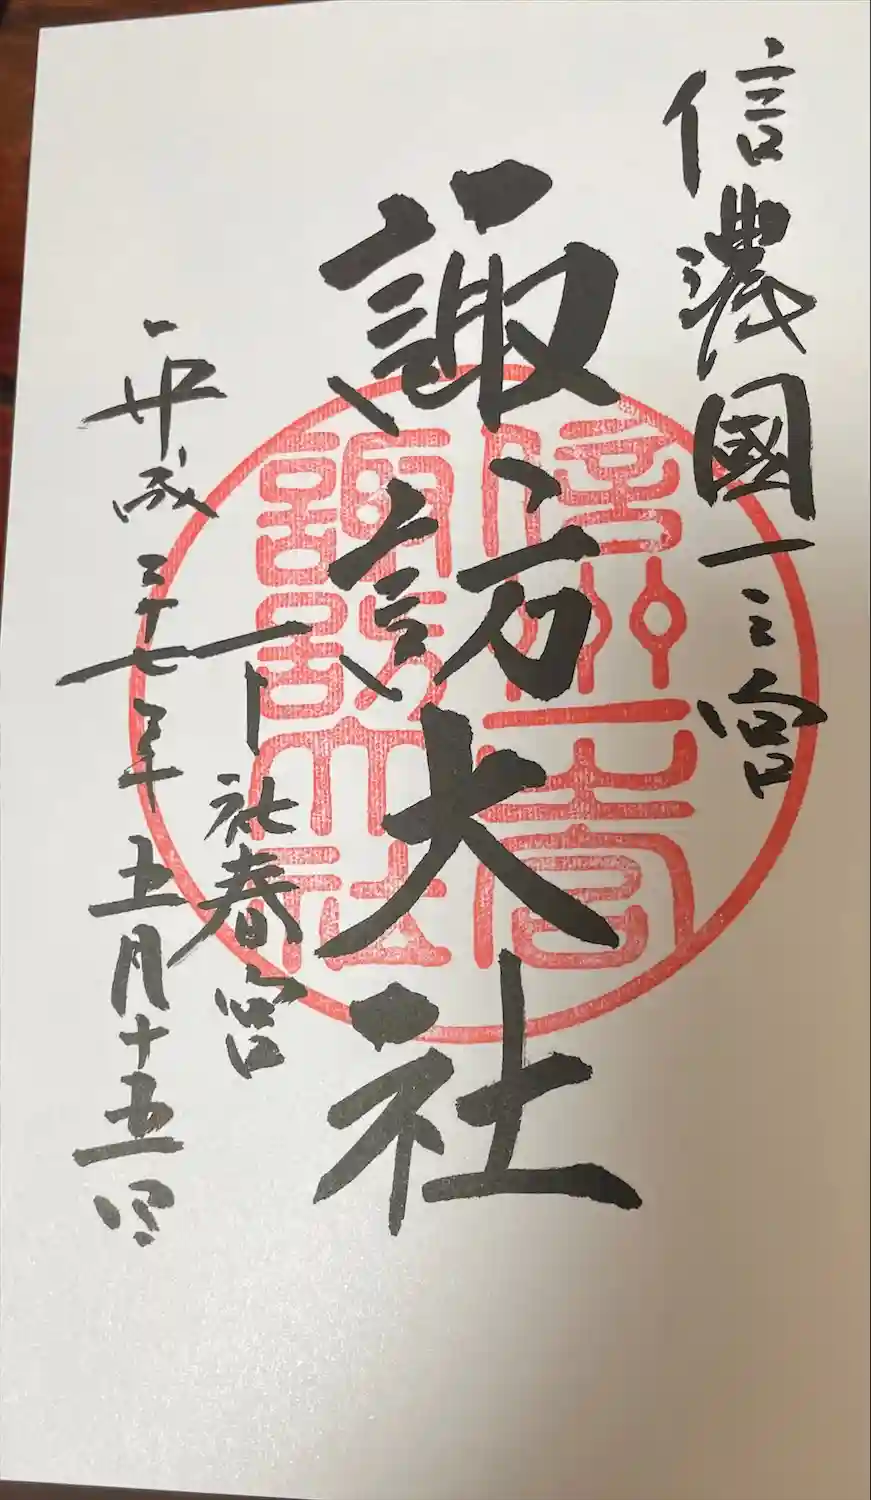 信濃國一之宮
諏訪大社
下社春宮
平成二十七年五月十五日
信州一之宮
諏訪大社